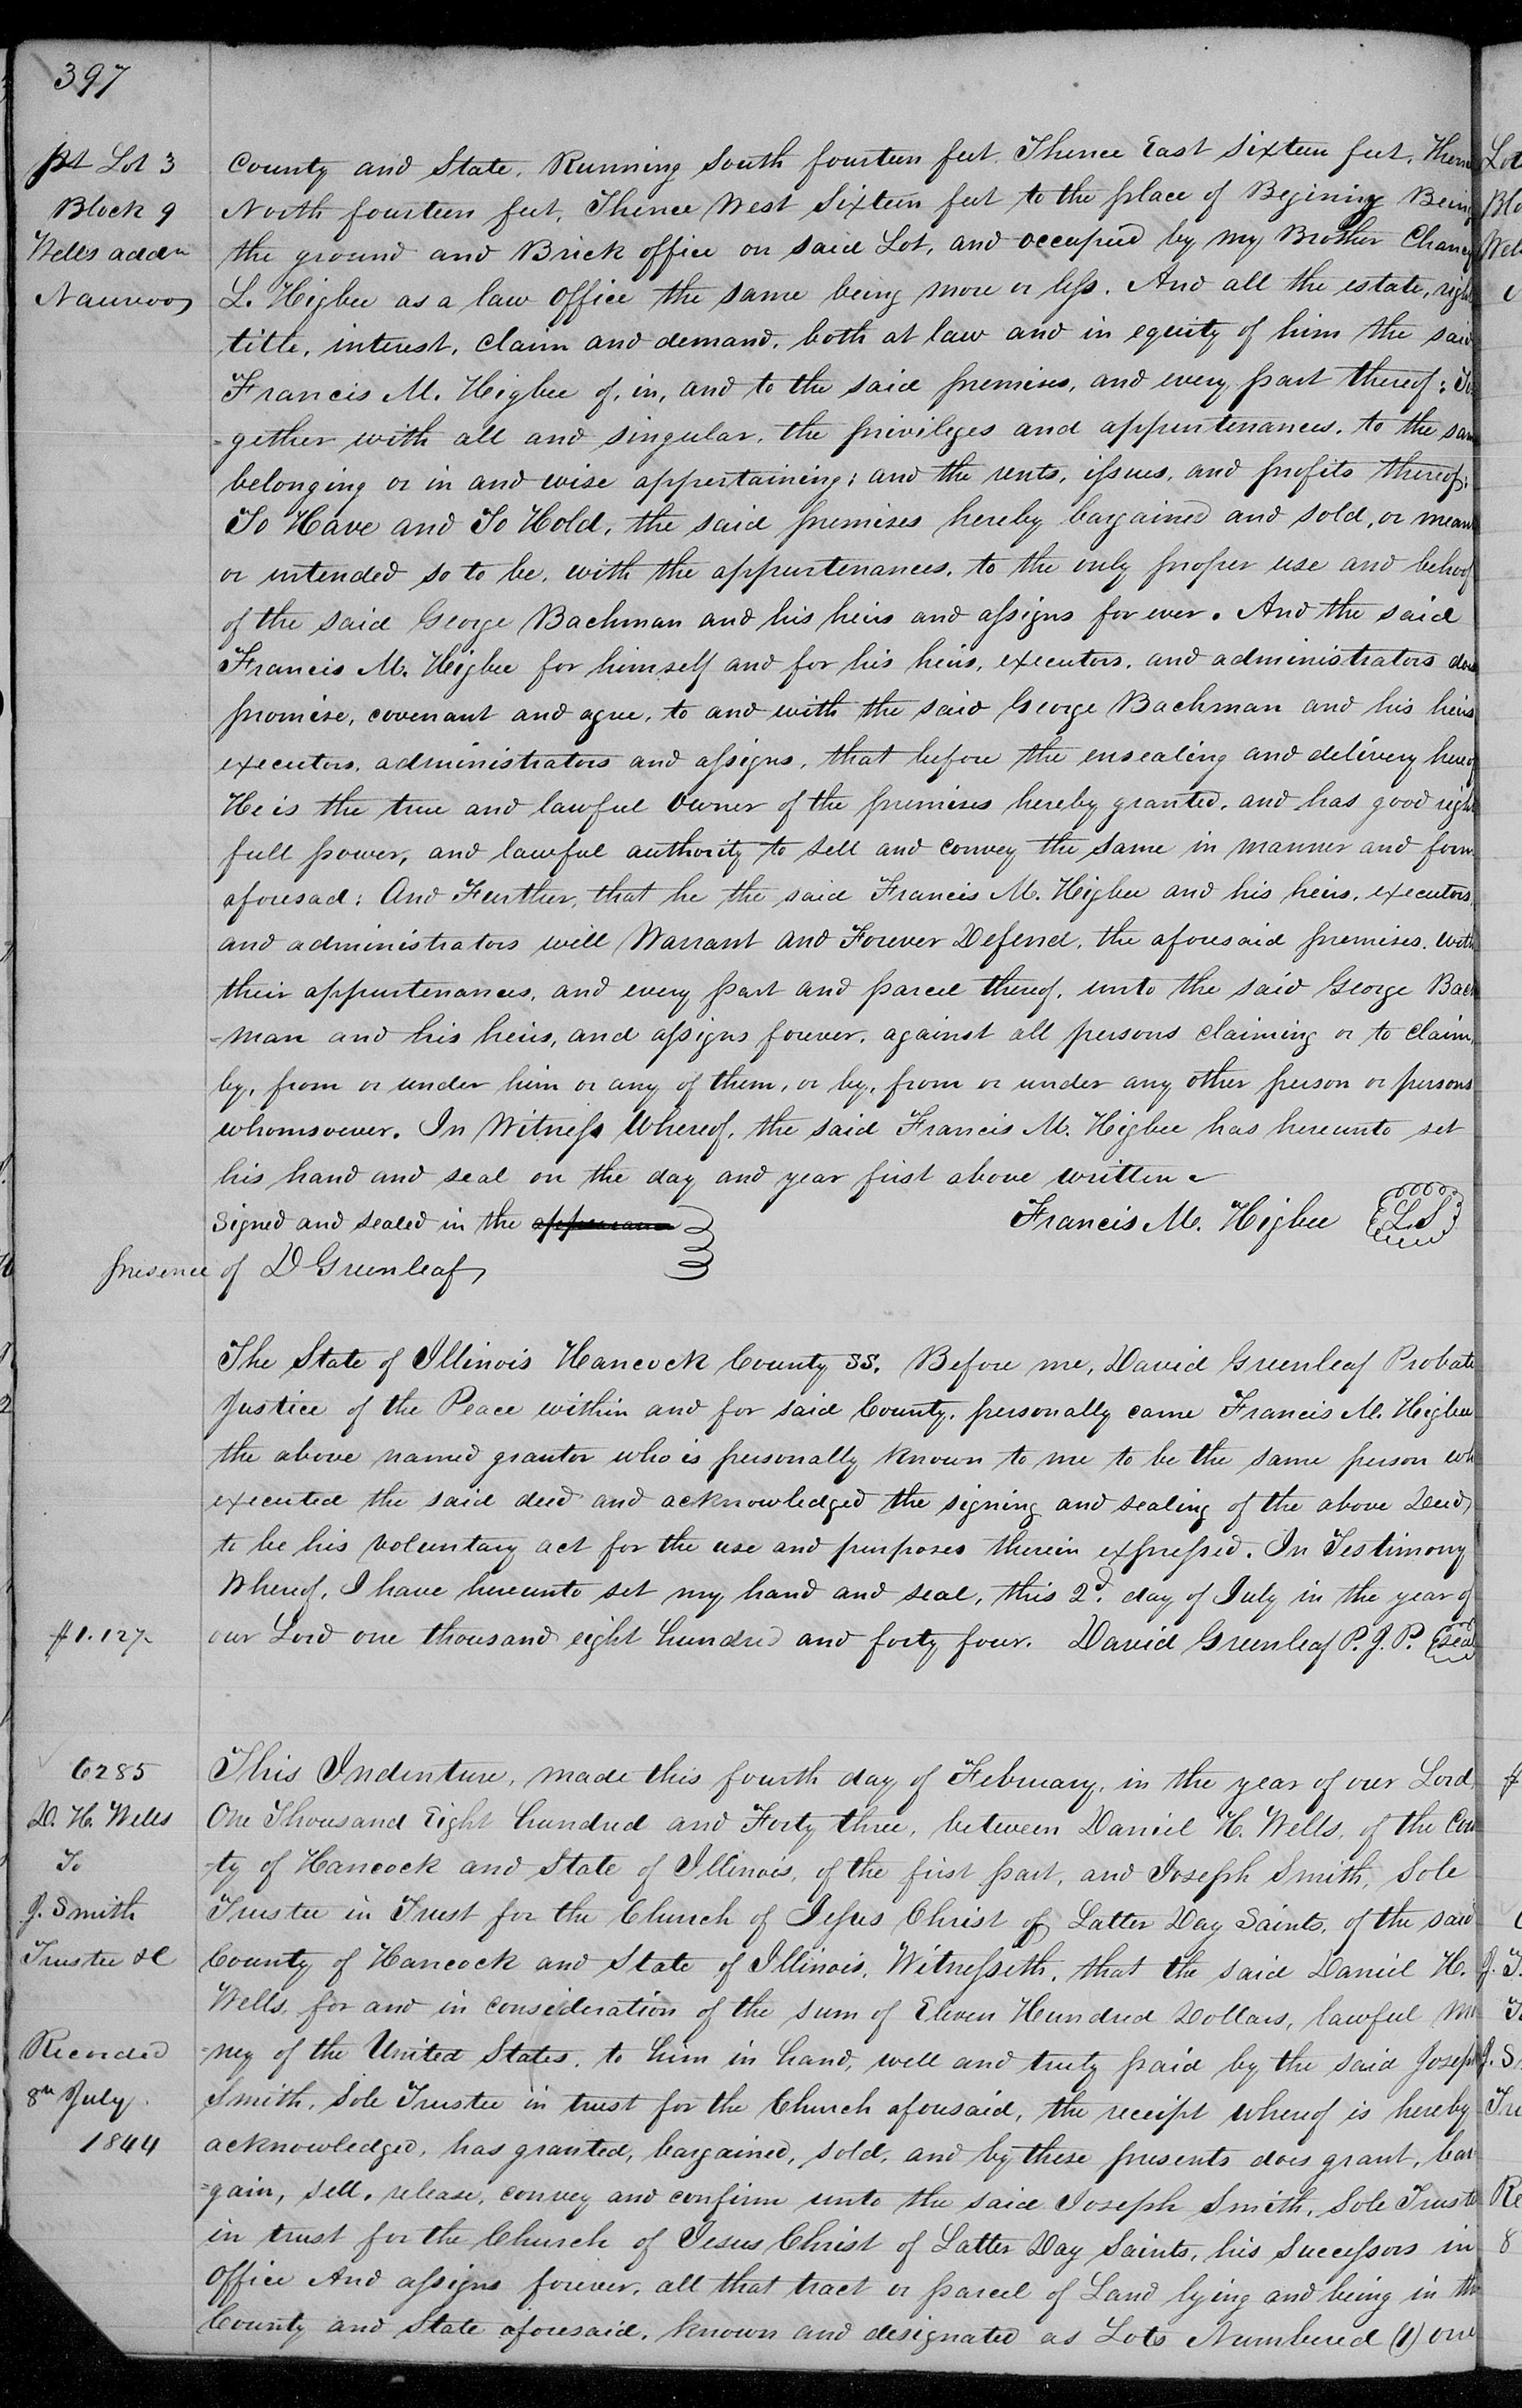 397
pt Lot 3
Block 9
Wells addn
Nauvoo
County and State, Running South fourteen feet, Thence East Sixteen feet, Thence
North fourteen feet, Thence West Sixteen feet to the place of Begining Being
the ground and Brick office on said Lot, and occupied by my Brother Chancy
L. Higbee as a law office the same being more or less. And all the estate, right
title, interest, claim and demand, both at law and in equity of him the said
Francis M. Higbee of, in, and to the said premises, and every part thereof; To
-gether with all and singular, the privileges and appurtenances, to the same
belonging or in and wise appertaining; and the rents, issues, and profits thereof;
To Have and To Hold, the said premises hereby bargained and sold, or meant
or intended so to be, with the appurtenances, to the only proper use and behoof
of the said George Bachman and his heirs and assigns for ever. And the said
Francis M. Higbee for himself and for his heirs, executors, and administrators does
promise, covenant and agree, to and with the said George Bachman and his heirs
executors, administrators and assigns, that before the ensealing and delivery hereof
He is the true and lawful owner of the premises hereby granted, and has good right
full power, and lawful authority to sell and convey the same in manner and form
aforesad; And Further, that he the said Francis M. Higbee and his heirs, executors,
and administrators will Warrant and Forever Defend, the aforesaid premises, with
their appurtenances, and every part and parcel thereof, unto the said George Bach
-man and his heirs, and assigns forever, against all persons claiming or to claim,
by, from or under him or any of them, or by, from or under any other person or persons
whomsoever. In Witness Whereof, the said Francis M. Higbee has hereunto set
his hand and seal on the day and year first above written
Signed and sealed in the
presence of D Greenleaf
Francis M. Higbee L.S
The State of Illinois Hancock County SS. Before me, David Greenleaf Probate
Justice of the Peace within and for said County, personally came Francis M. Higbee
the above named grantor who is personally known to me to be the same person who
executed the said deed and acknowledged the signing and sealing of the above Deed
to be his voluntary act for the use and purposes therein expressed. In Testimony
Whereof, I have hereunto set my hand and seal, this 2d. day of July in the year of
our Lord one thousand eight hundred and forty four. David Greenleaf P. J. P. seal
6285
D. H. Wells
To
J. Smith
Trustee &c
Recorded
8th July
1844
This Indenture, made this fourth day of February, in the year of our Lord
One Thousand Eight hundred and Forty three, between Daniel H. Wells, of the Coun
-ty of Hancock and State of Illinois, of the first part, and Joseph Smith, Sole
Trustee in Trust for the Church of Jesus Christ of Latter Day Saints, of the said
County of Hancock and State of Illinois, Witnesseth, that the said Daniel H.
Wells, for and in consideration of the sum of Eleven Hundred Dollars, lawful mo
-ney of the United States, to him in hand, well and truly paid by the said Joseph
Smith, Sole Trustee in trust for the Church aforesaid, the receipt whereof is hereby
acknowledged, has granted, bargained, sold, and by these presents does grant, bar
-gain, sell, release, convey and confirm unto the said Joseph Smith, Sole Trustee
in trust for the Church of Jesus Christ of Latter Day Saints, his Successors in
Office And assigns forever, all that tract or parcel of Land lying and being in the
County and State aforesaid, known and designated as Lots Numbered (1) one